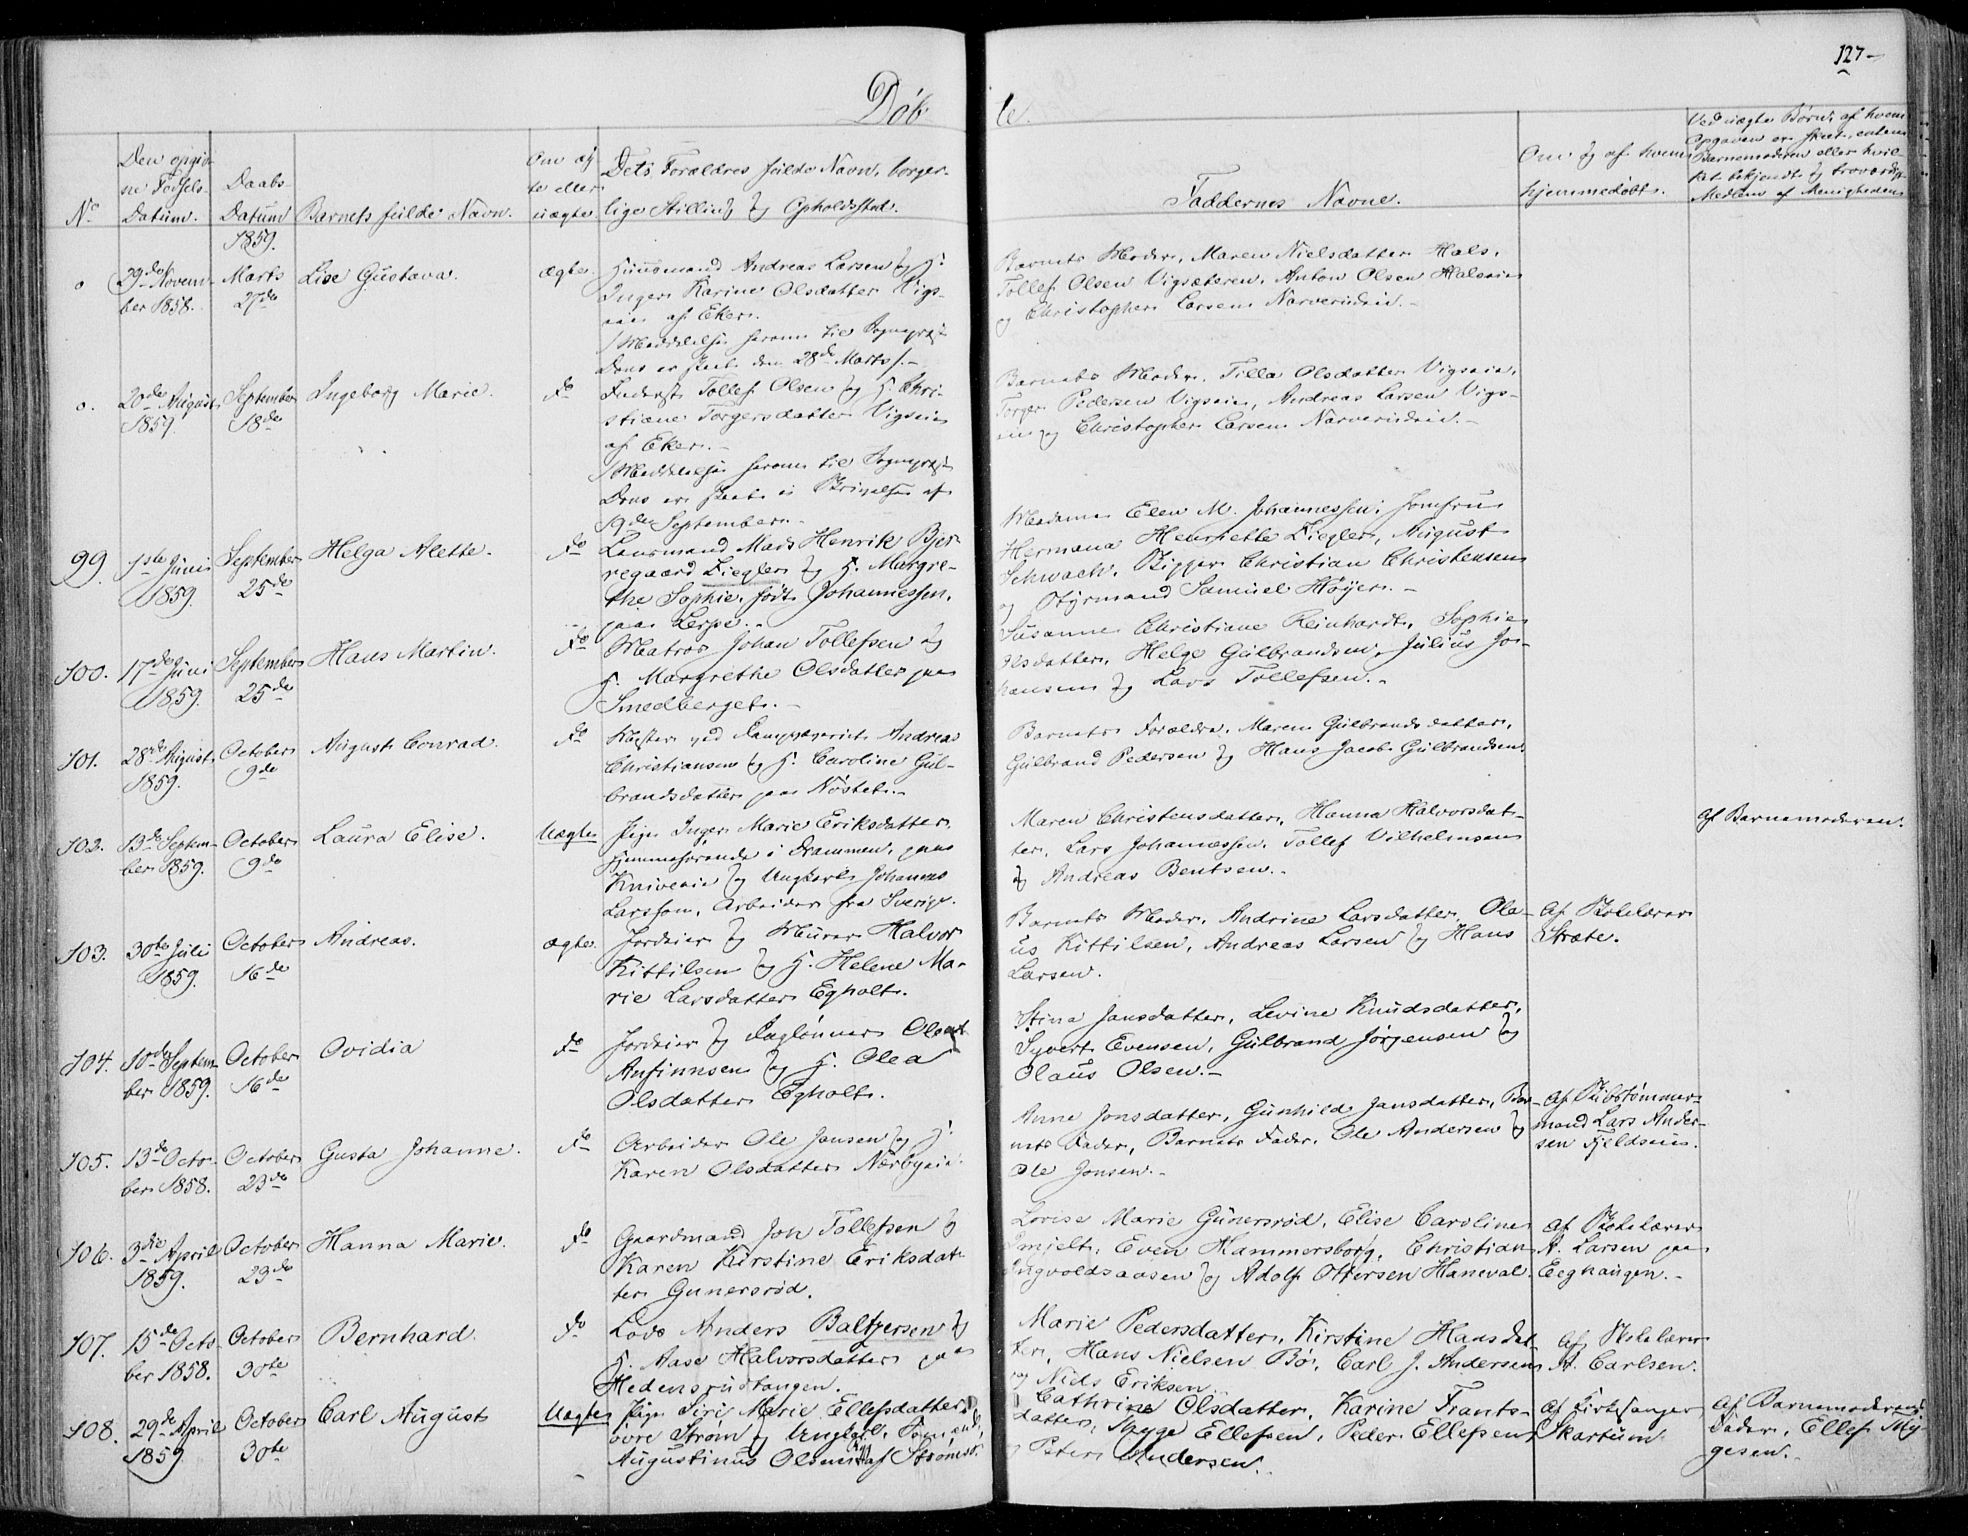 127
Døbte.
No
Den opgivne Fødsels-Datum.
Daabs-Datum
Barnets fulde Navn.
Om ægte eller uægte
Dets Forældres fulde Navn, borgerlige Stilling og Opholdssted.
Faddernes Navne.
Om og af hvem hjemmedøbt.
Ved uægte Børn, af hvem Opgaven er skeet, enten Barnemoderen eller hvilket bekjendt og troværdigt Medlem af Menigheden
1859.
o
29de Novem-
ber 1858.
Marts
27de
Lise Gustava.
ægte
Huusmand Andreas Larsen og H.
Inger Karine Olsdatter Vigs-
eie af Eker.
/Meddelelse herom til Sognepræst
Dons er skeet den 28de Marts/.-
Barnets Moder, Maren Nielsdatter Hals,
Tollef Olsen Vigsæteren, Anton Olsen Halseie
og Christopher Larsen Narverudeie.-
o.
20de August
1859
September
18de
Ingeborg Marie.
do
Inderst Tollef Olsen og H. Chri-
stiane Torgersdatter Vigseie
af Eker.-
/Meddelelse herom til Sognepræst
Dons er skeet i Skrivelse af
19de September.-
Barnets Moder, Tilla Olsdatter Vigseie,
Torger Pedersen Vigseie, Andreas Larsen Vigs-
eie og Christopher Larsen Narverudeie.-
99.
1ste Juni
1859.
September
25de
Helga Alette.
do
Mads Henrik Bjer-
regaard Ziegler og H. Margre-
the Sophie født Johannessen,
paa Lerpe.-
Madame Elen M. Johannessen, Jomfru
Hermana Henriette Ziegler, August
Schwach, Skipper Christian Christensen
og Styrmand Samuel Høyer.-
100.
17de Juni
1859.
September
25de
Hans Martin.
do
Matros Johan Tollefsen og
H. Margrethe Olsdatter paa
Smedberget.-
Susanne Christiane Reinhardt, Sophie
Olsdatter, Helge Gulbrandsen, Julius Jo-
hansen og Lars Tollefsen.-
101.
28de August
1859.
October
9de
August Conrad.
do
Mester ved Andreas
Christiansen og H. Caroline Gul-
brandsdatter paa Nøstet.-
Barnets Forældre, Maren Gulbrandsdatter,
Gulbrand Pedersen og Hans Jacob Gulbrandsen.
102.
13de Septem-
ber 1859.
October
9de
Laura Elise.
Uægte
Pige Inger Marie Eriksdatter,
hjemmehørende i Drammen, paa
Kniveeie og Ungkarl Johannes
Larsson, Arbeider fra Sverige.
Maren Christensdatter, Hanna Halvorsdat-
ter, Lars Johannessen, Tollef Vilhelmsen
og Andreas Bentsen.-
Af Barnemoderen.
103.
30te Juli
1859.
October
16de
Andreas.
ægte
Jordeier og Murer Halvor
Kittilsen og H. Helene Ma-
rie Larsdatter Egholt.
Barnets Moder, Andrine Larsdatter, Ola-
us Kittilsen, Andreas Larsen og Hans
Larsen.
Af Skolelærer
Stræte.
104.
10de Septem-
ber 1859.
October
16de
Ovidia
do
Jordeier og Daglønner Oluf
Anfinnsen og H. Olea
Olsdatter Egholt.
Stina Jansdatter, Levine Knudsdatter,
Syvert Evensen, Gulbrand Jørgensen og
Olaus Olsen.-
105.
13de Octo-
ber 1858.
October
23de
Gusta Johanne.
do
Arbeider Ole Jansen og H.
Karen Olsdatter Nærbyeie.
Anne Jonsdatter, Gunhild Jansdatter, Bar-
nets Fader, Barnets Fader, Ole Andersen og
Ole Jonsen.-
Af Skibstømmer-
mand Lars Ander-
sen Fjeldseie.
106.
3die April
1859.
October
23de
Hanna Marie.
do
Gaardmand Jon Tollefsen og
Karen Kirstine Eriksdat-
ter Gunersrød.
Lovise Marie Gunersrød, Elise Caroline
Smjelt, Even Hammersborg, Christian
Ingvoldsaasen og Adolf Ottersen Haneval.
Af Skolelærer
A. Larsen paa
Eeghaugen.-
107.
15de Octo-
ber 1858.
October
30te
Bernhard.
do
Lods Anders Baltzersen og
H. Aase Halvorsdatter paa
Hedensrudtangen.
Marie Pedersdatter, Kirstine Hansdat-
ter, Hans Nielsen Bø, Carl J. Andersen
og Niels Eriksen
Af Skolelærer
A. Carlsen.
108.
29de April
1859
October
30te
Carl August
Uægte
Pige Siri Marie Ellefsdatter,
øvre Strøm og Ungkarl, Sømand,
Augustinus Olsen af Strømsø.
Cathrine Olsdatter, Karine Frants-
datter, Mygge Ellefsen, Peder Ellefsen
og Peter Andersen.-
Af Kirkesanger
Skartum
Af Barnemoderens
Fader, Ellef My-
gesen.-